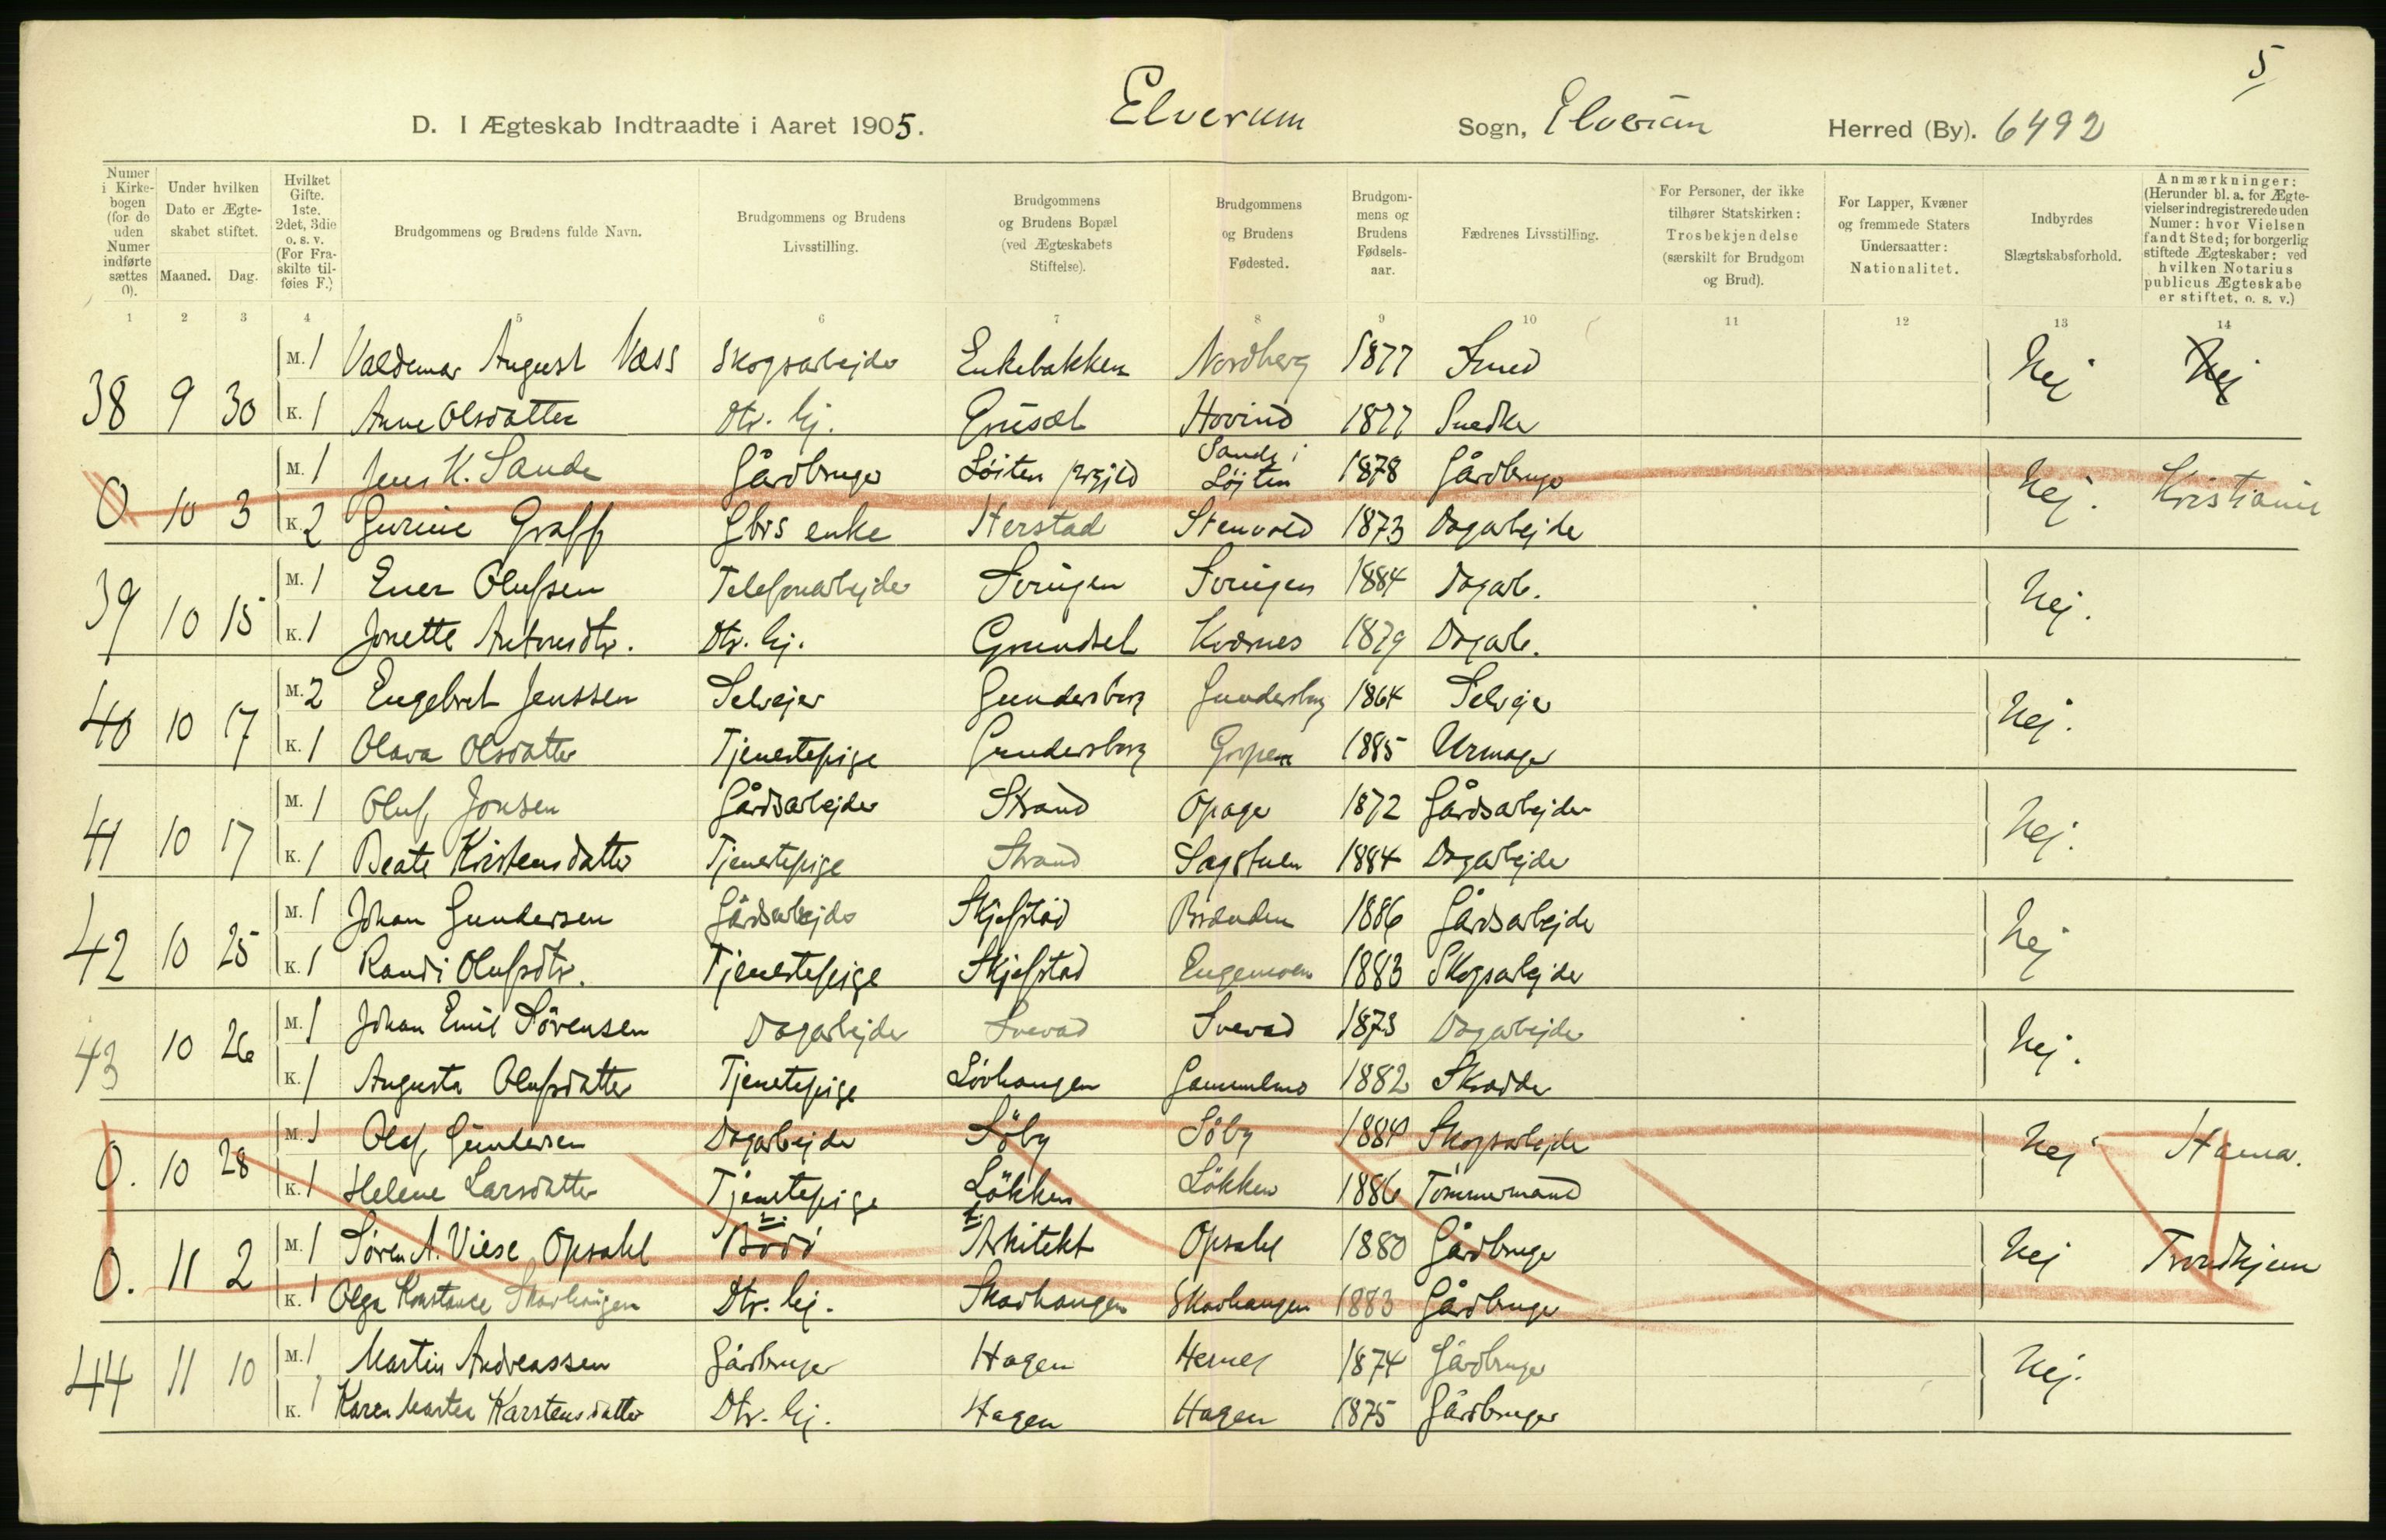 5
D. I Ægteskab Indtraadte i Aaret 1905. Elverum Sogn, Elverum Herred (By). 6492
Numer i Kirkebogen (for de uden Numer indførte sættes 0).
Under hvilken Dato er Ægteskabet stiftet.
Maaned. Dag.
Hvilket Gifte. 1ste. 2det, 3die o. s. v. (For Fraskilte tilføies F.)
Brudgommens og Brudens fulde Navn.
Brudgommens og Brudens Livsstilling.
Brudgommens og Brudens Bopæl (ved Ægteskabets Stiftelse).
Brudgommens og Brudens Fødested.
Brudgommens og Brudens Fødselsaar.
Fædrenes Livsstilling.
For Personer, der ikke tilhører Statskirken: Trosbekjendelse (særskilt for Brudgom og Brud).
For Lapper, Kvæner og fremmede Staters Undersaatter: Nationalitet.
Indbyrdes Slægtskabsforhold.
Anmærkninger: (Herunder bl. a. for Ægtevielser indregistrerede uden Numer: hvor Vielsen fandt Sted; for borgerlig stiftede Ægteskaber: ved hvilken Notarius publicus Ægteskabe er stiftet, o. s. v.)
1 2 3 4 5 6 7 8 9 10 11 12 13 14
38 9 30 M. 1 Valdemar August Næss Skogsarbejder Enkebakken Nordberg 1877 Smed Nej Nej
K. 1 Anne Olsdatter Dtr. hj. Hovind 1877 Snedker
0 10 3 M. 1 Jens K. Sande Gårdbruger Löiten prgjld Sande i Löjten 1878 Gårdbruger Nej. Kristiania
K. 2 Gurine Graff Gbrs enke Herstad Stenvold 1873 Dagarbejder
39 10 15 M. 1 Ener Olufsen Telefonarbejder 1884 Dagarb. Nej.
K. 1 Jonette Antonsdtr. Dtr. hj. Grundset Kværnes 1879 Dagarb.
40 10 17 M. 2 Engebret Jenssen Selvejer Gundersborg Gundersborg 1864 Selvejer Nej.
K. 1 Olava Olsdatter Tjenestepige Gundersborg Gropen 1885 Urmager
41 10 17 M. 1 Oluf Jonsen Gårdsarbejder Strand Opage 1872 Gårdsarbejder Nej.
K. 1 Beate Kristensdatter Tjenestepige Strand Sagstuen 1884 Dagarbejder
42 10 25 M. 1 Johan Gundersen Gårdsarbejder Skjefstad Brænden 1886 Gårdsarbejder Nej
K. 1 Randi Olufsdtr. Tjenestepige Skjefstad Engemoen 1883 Skogsarbejder
43 10 26 M. 1 Johan Emil Sörensen Dagarbejder Svevad Svevad 1873 Dagarbejder Nej.
K. 1 Augusta Olufsdatter Tjenestepige Lövhaugen Gammelmo 1882 Skrædder
0. 10 28 M. 1 Olaf Gundersen Dagarbejder Söby Söby 1884 Skogsarbejder Nej Hamar.
K. 1 Helene Larsdatter Tjenestepige Lökken Lökken 1886 Tömmermand
0. 11 2 M. 1 Sören A. Viese Opsahl 2. Bodö 1. Arkitekt Opsahl 1880 Gårdbruger Nej Trondhjem
K. 1 Olga Konstance Skavhaugen Dtr. hj. Skavhaugen Skavhaugen 1883 Gårdbruger
44 11 10 M. 1 Martin Andreassen Gårdbruger Hagen Hernes 1874 Gårdbruger Nej.
K. 1 Karen Martea Karstensdatter Dtr. hj. Hagen Hagen 1875 Gårdbruger